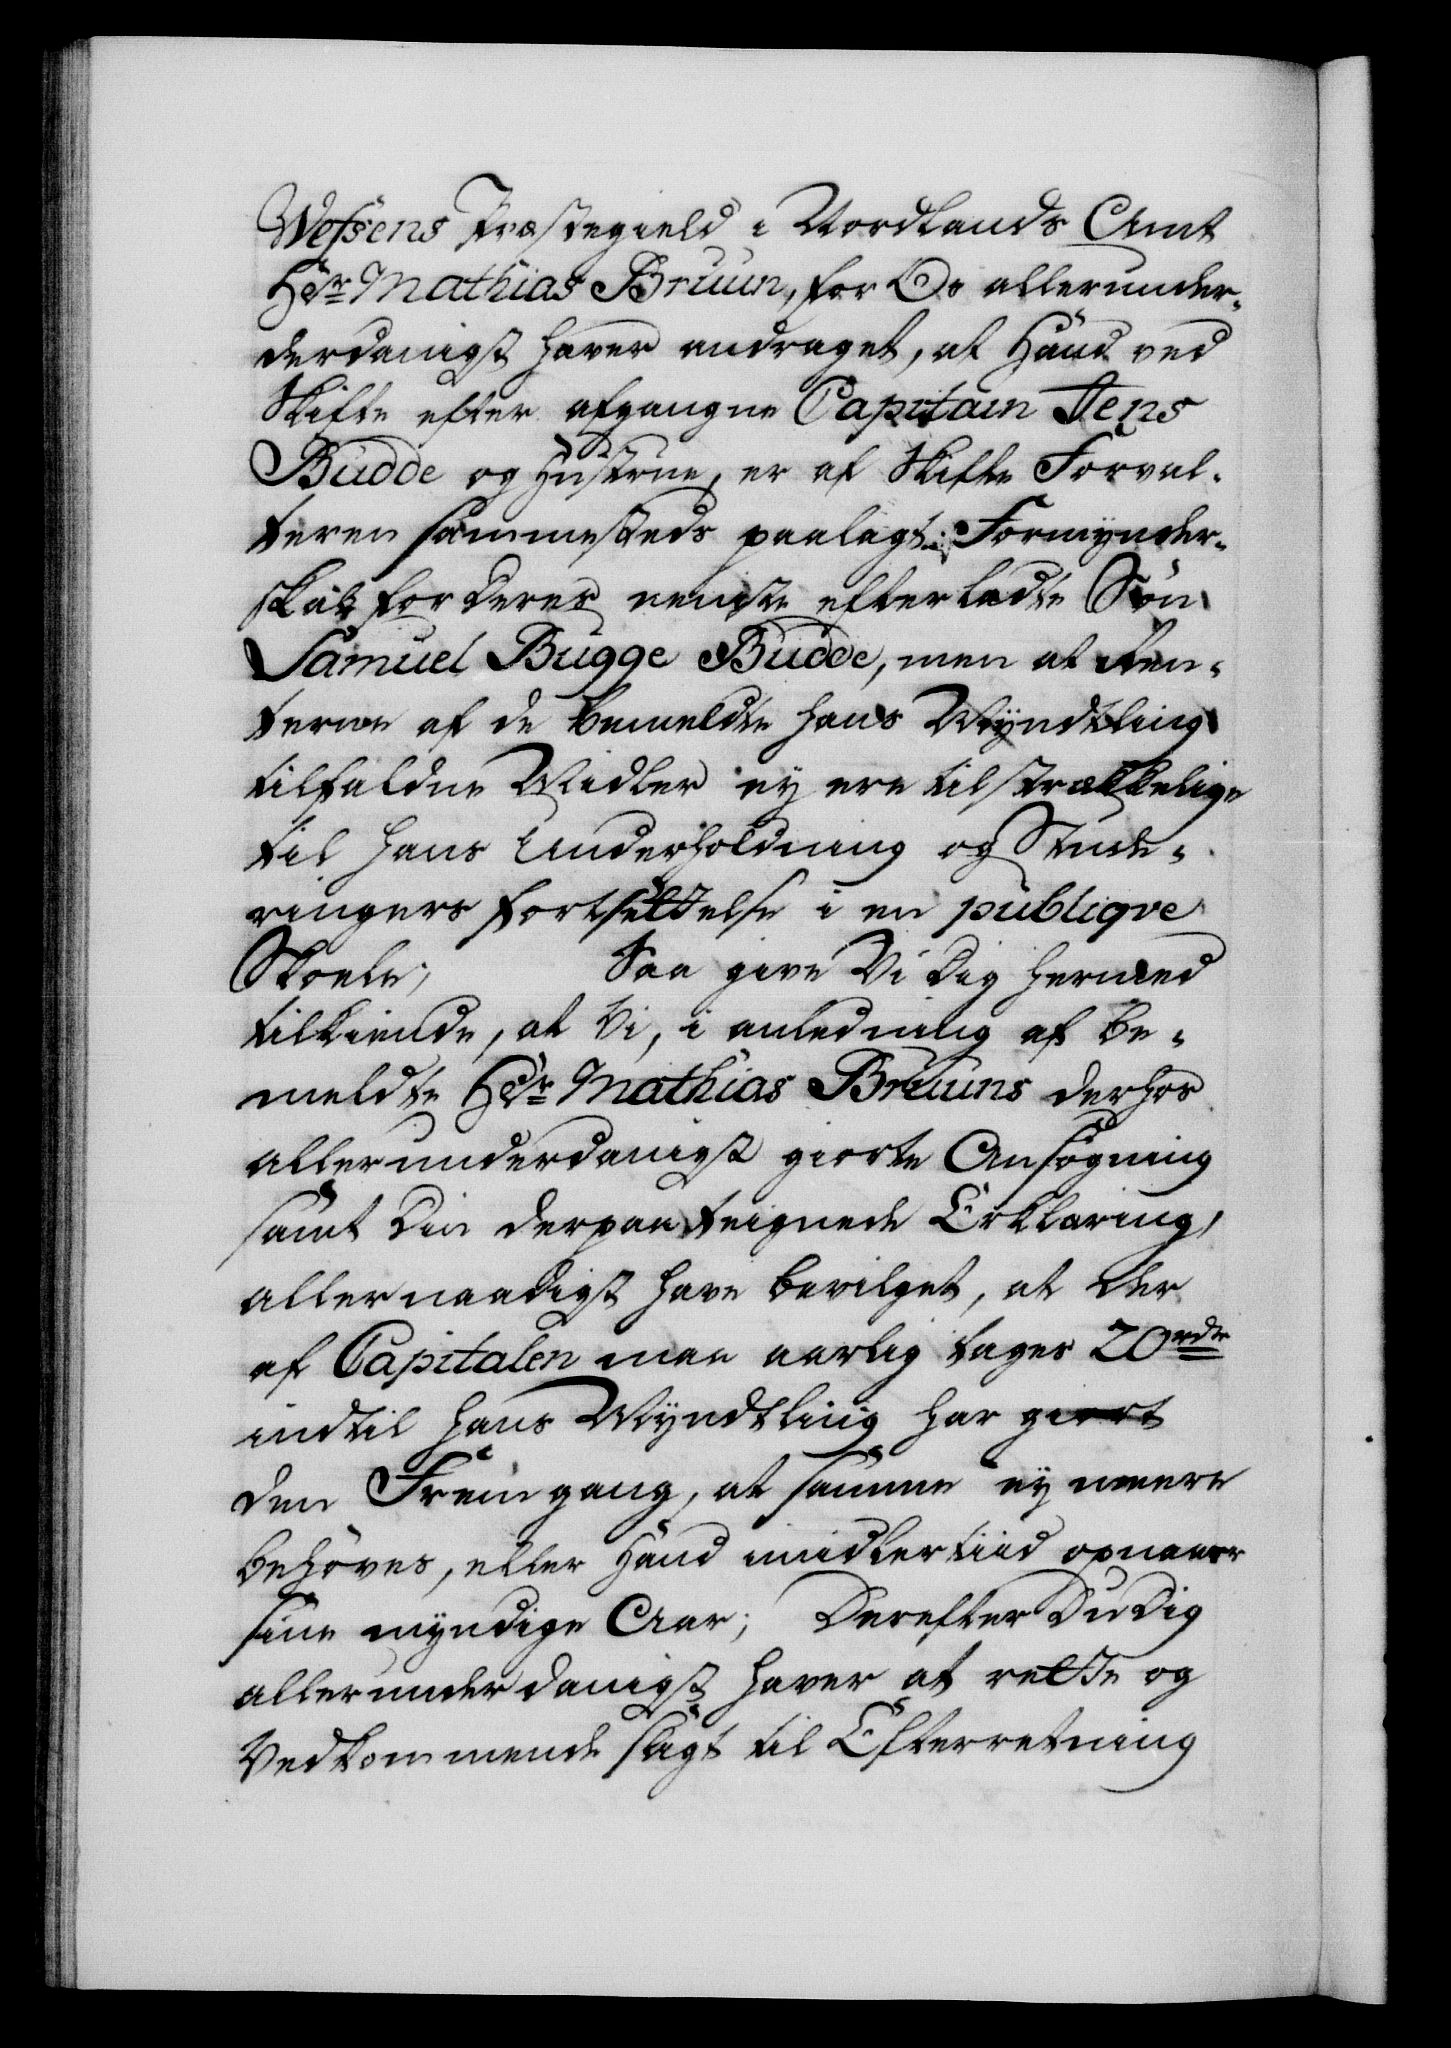 Wefsens Præstegield i Nordlands Amt
Hr Mathias Bruun, for Os allerunder-
derdanigst haver andraget, at Hand ved
Skifte efter afgangne Capitain Jens
Budde og Hustrue, er af Skifte Forval-
teren sammesteds paalagt Formynder-
skab for deres eeniste efterladte Søn
Samuel Bugge Budde, men at Ren-
terne af de bemeldte hans Myndtling
tilfaldne Midler ey ere tilstrækkelige
til hans Underholdning og Stude-
ringers fortsettelse i en publiqve
Skoele; Saa give Vi Dig hermed
tilkiende, at Vi, i anledning af be-
meldte Hr Mathias Bruuns derhos
allerunderdanigst giorte Ansøgning
samt Din derpaa teignede Erklæring,
allernaadigst have bevilget, at der
af Capitalen maa aarlig tages 20 rdr
indtil hans Myndtling har giort
den Fremgang, at samme ey meere
behøves, eller Hand imidlertiid opnaaer
sine myndige Aar; Derefter Du Dig
allerunderdanigst haver at rette og
Vedkommende sligt til Efterretning